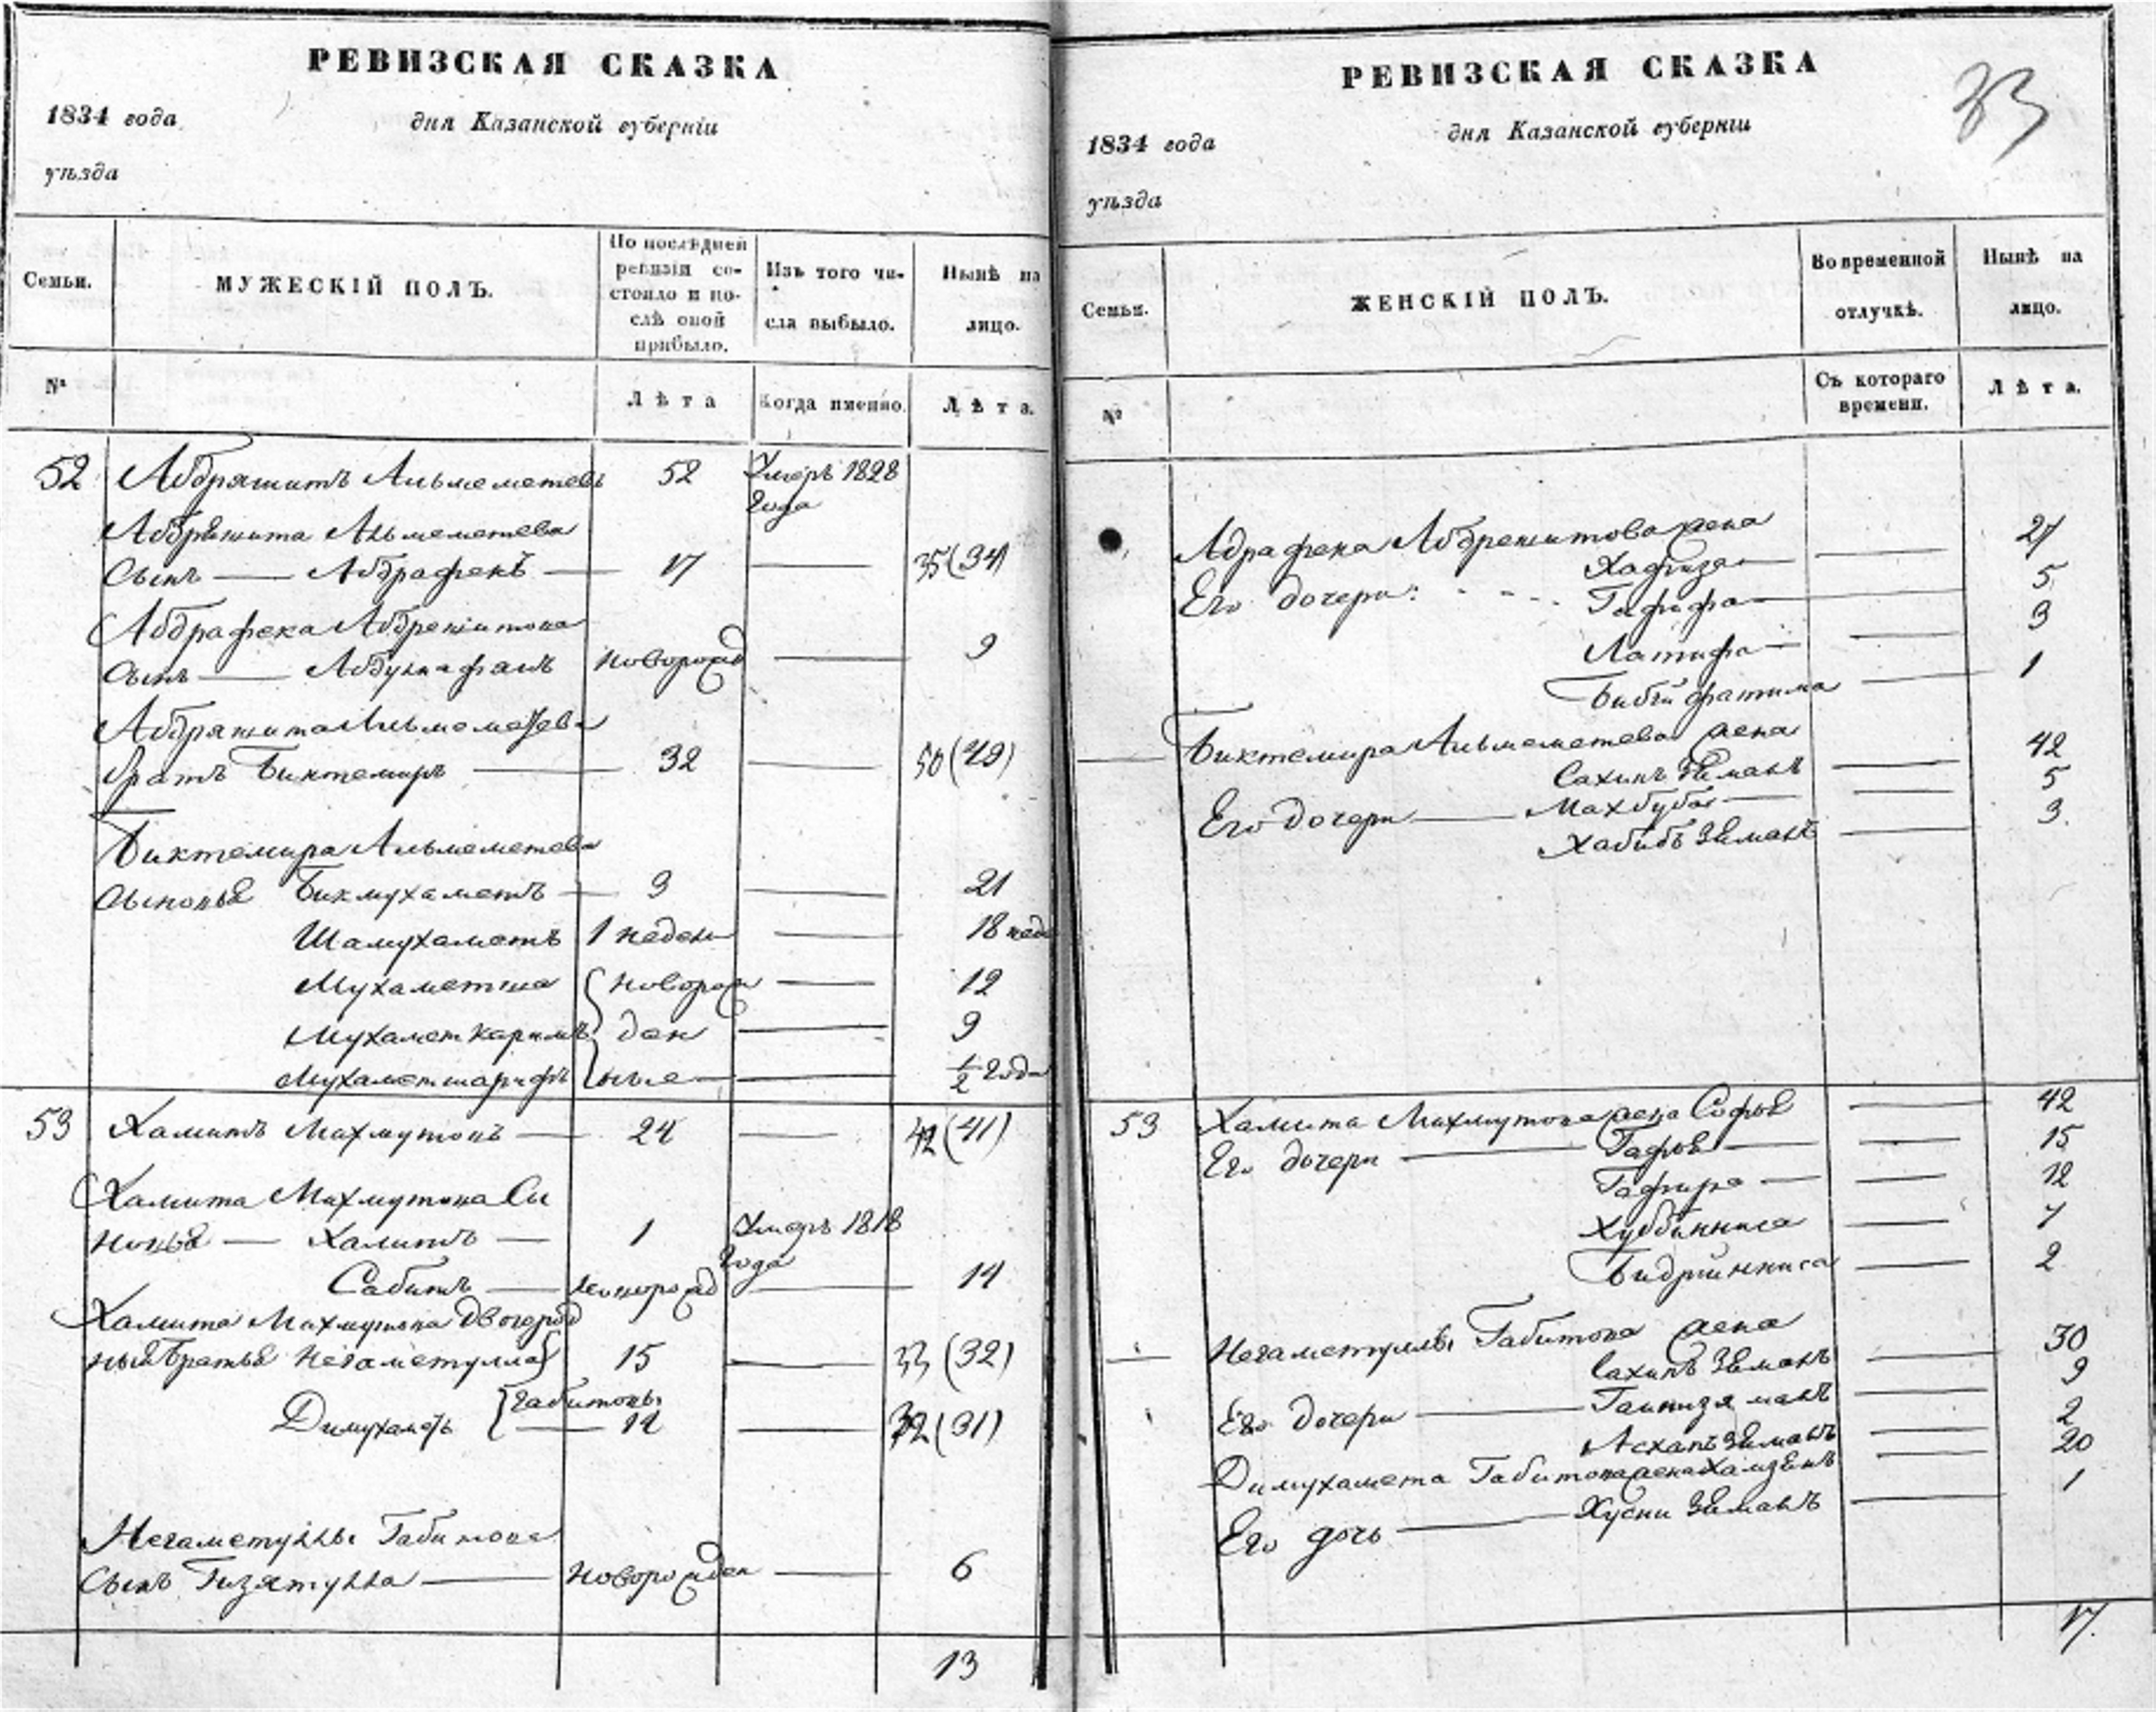 РЕВИЗСКАЯ СКАЗКА
1834 года
дня Казанской губерніи
уѣзда
Семьи.
МУЖЕСКІЙ ПОЛЪ.
По послѣдней
ревизіи со-
стояло и по-
слѣ оной
прибыло.
Изъ того чи-
сла выбыло.
Нынѣ на
лицо.
№
Лѣта
Когда именно.
Лѣта.
52 Абдряшитъ Альмеметевъ 52 Умеръ 1828
года
Абдряшита Альмеметева
Сынъ — Абдрафекъ — 17 — 35 (34)
Абдрафека Абдрешитова
Сынъ — новорожд — 9
Абдряшита Альмеметева
братъ Биктемиръ — 32 — 50 (49)
Биктемира Альмеметева
Сыновья Бикмухаметъ — 3 — 21
Шамухаметъ 1 недели — 18 нед
Мухаметша новорож — 12
Мухаметкаримъ ден — 9
Мухаметшарифъ ные — ½ года
53 Хамитъ Махмутовъ — 24 — 42 (41)
Хамита Махмутова Сы
новья — Халитъ — 1 Умеръ 1818
года
Сабитъ — новорожд — 14
Хамита Махмутова двоюрод
ный братья Негаметулла 15 — 33 (32)
Габитовы
Димухаметъ — 12 — 32 (31)
Негаметуллы Габитова
Сынъ Гизятулла — новорожден — 6
13
РЕВИЗСКАЯ СКАЗКА
33
1834 года
дня Казанской губерніи
уѣзда
Семьи.
ЖЕНСКІЙ ПОЛЪ.
Во временной
отлучкѣ.
Нынѣ на
лицо.
№
Съ котораго
времени.
Лѣта.
Абдрафека Абдрешитова жена
Хафиза — — 27
Его дочери: Гафифа — 5
Латифа — — 3
Бибиǐ фатима — 1
— Биктемира Альмеметева жена
Сахипъ Земалъ — 42
Его дочери — Махбуба — — 5
Хабибъ Земалъ — 3.
53 Хамита Махмутова жена Софья — 42
Его дочери — — 15
Гафира — — 12
Хуббинниса — 7
Бидриннниса — 2
— Негаметуллы Габитова жена
Сахипъ Земалъ — 30
Его дочери — — 9
Асхапъ Земалъ — 2
Димухамета Габитова жена — 20
Его дочь — Хусни Земалъ — 1
17.